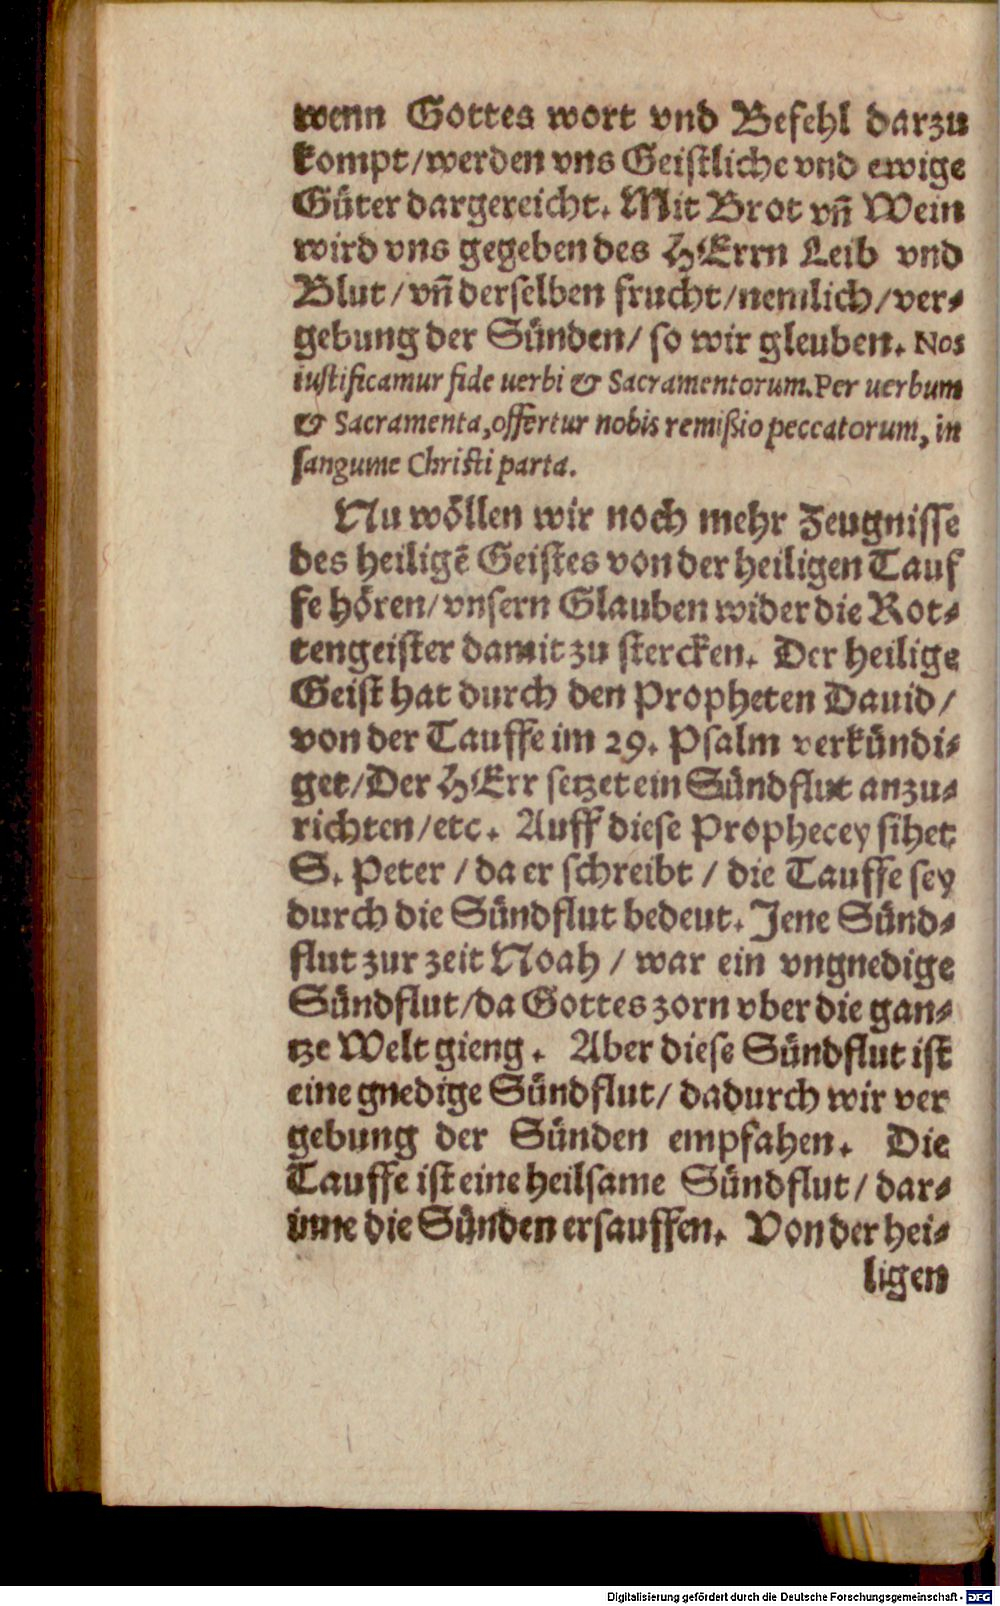 wenn Gottes wort vnd Befehl darzu
kompt/werden vns Geistliche vnd ewige
Güter dargereicht. Mit Brot vñ Wein
wird vns gegeben des HErrn Leib vnd
Blut/vñ derselben frucht/nemlich/ver-
gebung der Sünden/ so wir gleuben. Nos
iustificamur fide uerbi & Sacramentorum. Per uerbum
& Sacramenta, offertur nobis remißio peccatorum, in
sanguine Christi parta.
Nu wöllen wir noch mehr Zeugnisse
des heiligē Geistes von der heiligen Tauf
fe hören/vnsern Glauben wider die Rot-
tengeister damit zu stercken. Der heilige
Geist hat durch den Propheten Dauid/
von der Tauffe im 29. Psalm verkündi-
get/Der HErr setzet ein Sündflut anzu-
richten/etc. Auff diese Prophecey sihet
S. Peter / da er schreibt / die Tauffe sey
durch die Sündflut bedeut. Jene Sünd-
flut zur zeit Noah / war ein vngnedige
Sündflut/da Gottes zorn vber die gan-
tze Welt gieng. Aber diese Sündflut ist
eine gnedige Sündflut/ dadurch wir ver
gebung der Sünden empfahen. Die
Tauffe ist eine heilsame Sündflut/ dar-
inne die Sünden ersauffen. Von der hei-
ligen
Digitalisierung gefördert durch die Deutsche Forschungsgemeinschaft - DFG